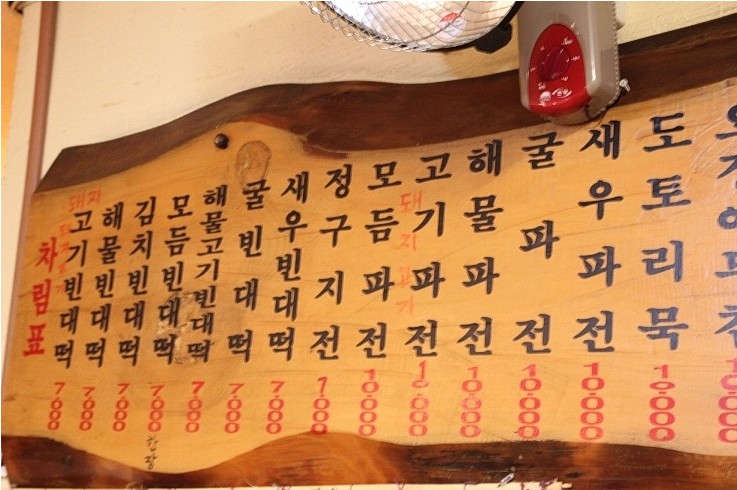 차림표
돼지
고기빈대떡 7000
해물빈대떡 7000
김치빈대떡 7000
모듬빈대떡 7000
해물고기빈대떡 7000
굴빈대떡 7000
새우빈대떡 7000
정구지전 7000
모듬파전 10000
돼지고기
고기파전 10000
해물파전 10000
굴파전 10000
새우파전 10000
도토리묵 10000